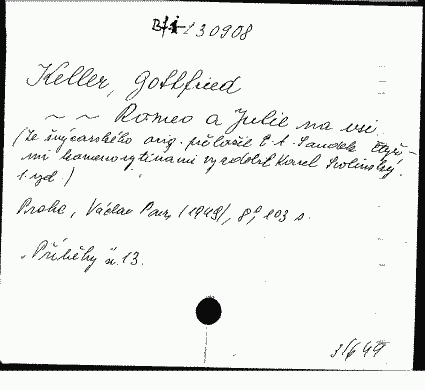 130908
Keller, Gottfried
~ ~ Romeo a Julie na vsi.
(Ze švýcarského orig. přeložil E. A. Saudek. Čtyř-
mi kamenorytinami vyzdobil Karel Svolinský.
1. vyd.)
Praha, Václav Petr, (1949), 8°, 103 s.
„Příběhy" č. 13.